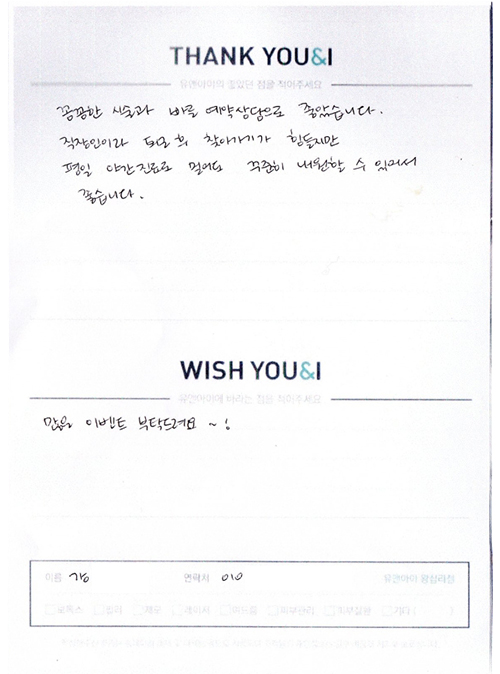 THANK YOU&I
유앤아이의 좋았던 점을 적어주세요
꼼꼼한 시술과 바로 예약상담으로 좋았습니다.
직장인이라 퇴근 후 찾아가기가 힘들지만
평일 야간진료로 멀어도 꾸준히 내원할 수 있어서
좋습니다.
WISH YOU&I
유앤아이에 바라는 점을 적어주세요
많은 이벤트 부탁드려요 ~!
이름 연락처 010 유앤아이 왕십리점
보톡스 필러 제모 레이저 여드름 피부관리 피부질환 기타 ( )